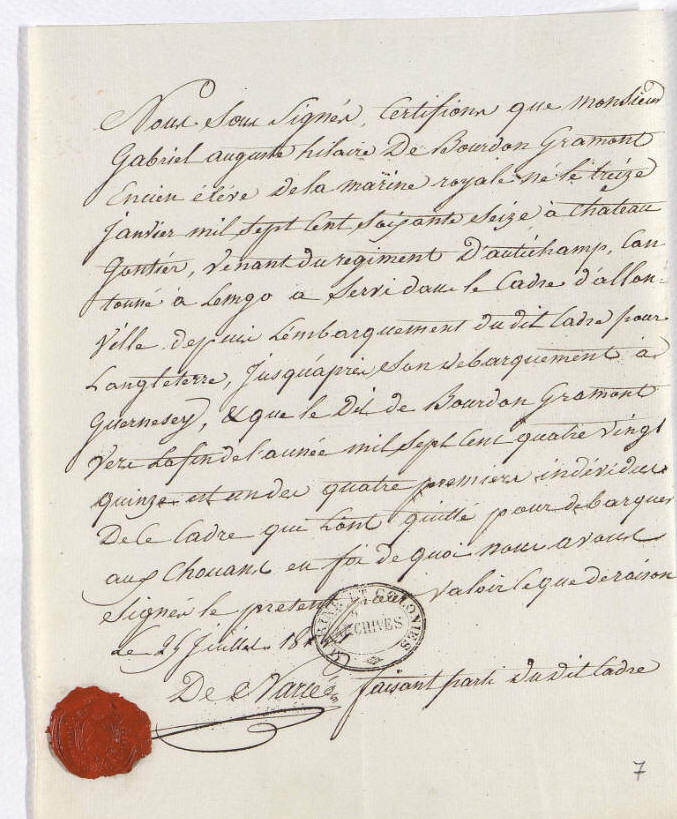 Nous sous signés, Certifions que monsieur
Gabriel auguste hilaire De Bourdon Gramont
Encien éléve de la marine royale né le treize
janvier mil sept cent soixante seize à chateau
gontier, venant du regiment D'autichamp, Can
tonné à Lemgo a servi dans le Cadre d'allon-
ville depuis L'embarquement du dit Cadre pour
L'angleterre, jusqu'aprés son debarquement à
guernesey, & que le Dit de Bourdon Gramont
vers la fin de l'année mil sept cent quatre vingt
quinze est un des quatre premiers individus
De ce Cadre qui L'ont quitté pour debarquer
aux Chouans en foi de quoi nous avons
signés le present pour valoir ce que de raison
Le 25 juillet
MARINE ET COLONIES
ARCHIVES
De Narcé faisant parti du dit Cadre
7